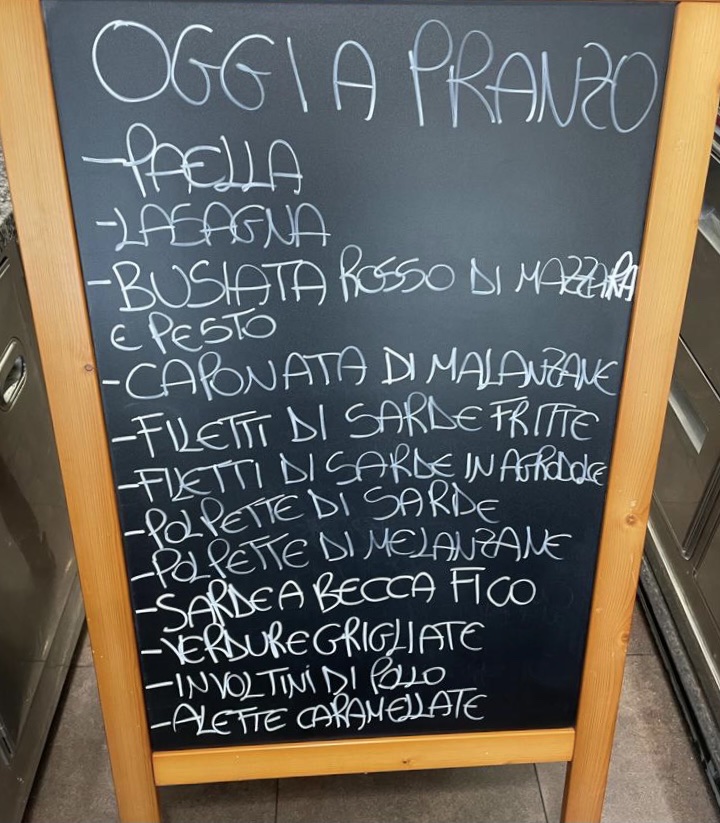 OGGI A PRANZO
-PAELLA
-LASAGNA
-BUSIATA ROSSO DI MAZZARA
E PESTO
-CAPONATA DI MALANZANE
-FILETTI DI SARDE FRITTE
-FILETTI DI SARDE IN AGRODOLCE
-POLPETTE DI SARDE
-POLPETTE DI MELANZANE
-SARDE A BECCA FICO
-VERDURE GRIGLIATE
-INVOLTINI DI POLLO
-ALETTE CARAMELLATE